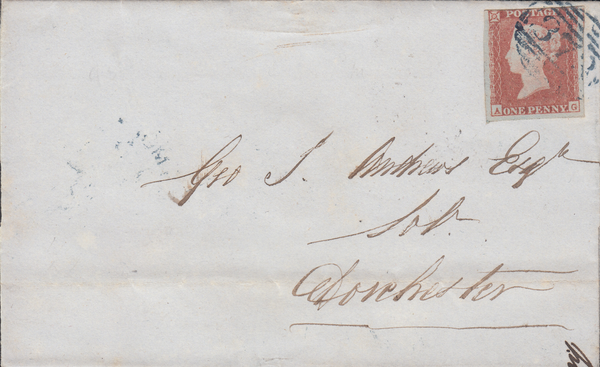 POSTAGE
A ONE PENNY G
Geo J. Andrews Esqr
Solr
Dorchester